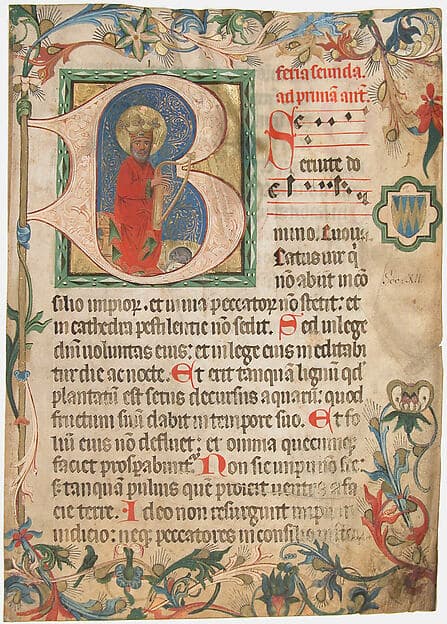 feria secunda.
ad primā añt.
S
eruite do
mino. Euoua
B
Eatus uir q
nō abiit in cō
silio impior. et in uia peccator nō stetit: et
in cathedra pestilentie nō sedit. Sed in lege
dnī uoluntas eius: et in lege eius meditabi
tur die ac nocte. Et erit tanquā lignū qd
plantatū est secus decursus aquarū: quod
fructum suū dabit in tempore suo. Et fo
liū eius nō defluet: et omnia quecunq;
faciet prosperabunt. Non sic impii nō sic:
s; tanquam puluis quē proicit uentus a fa
cie terre. Ideo non resurgunt impii in
iudicio: neq; peccatores in consilio